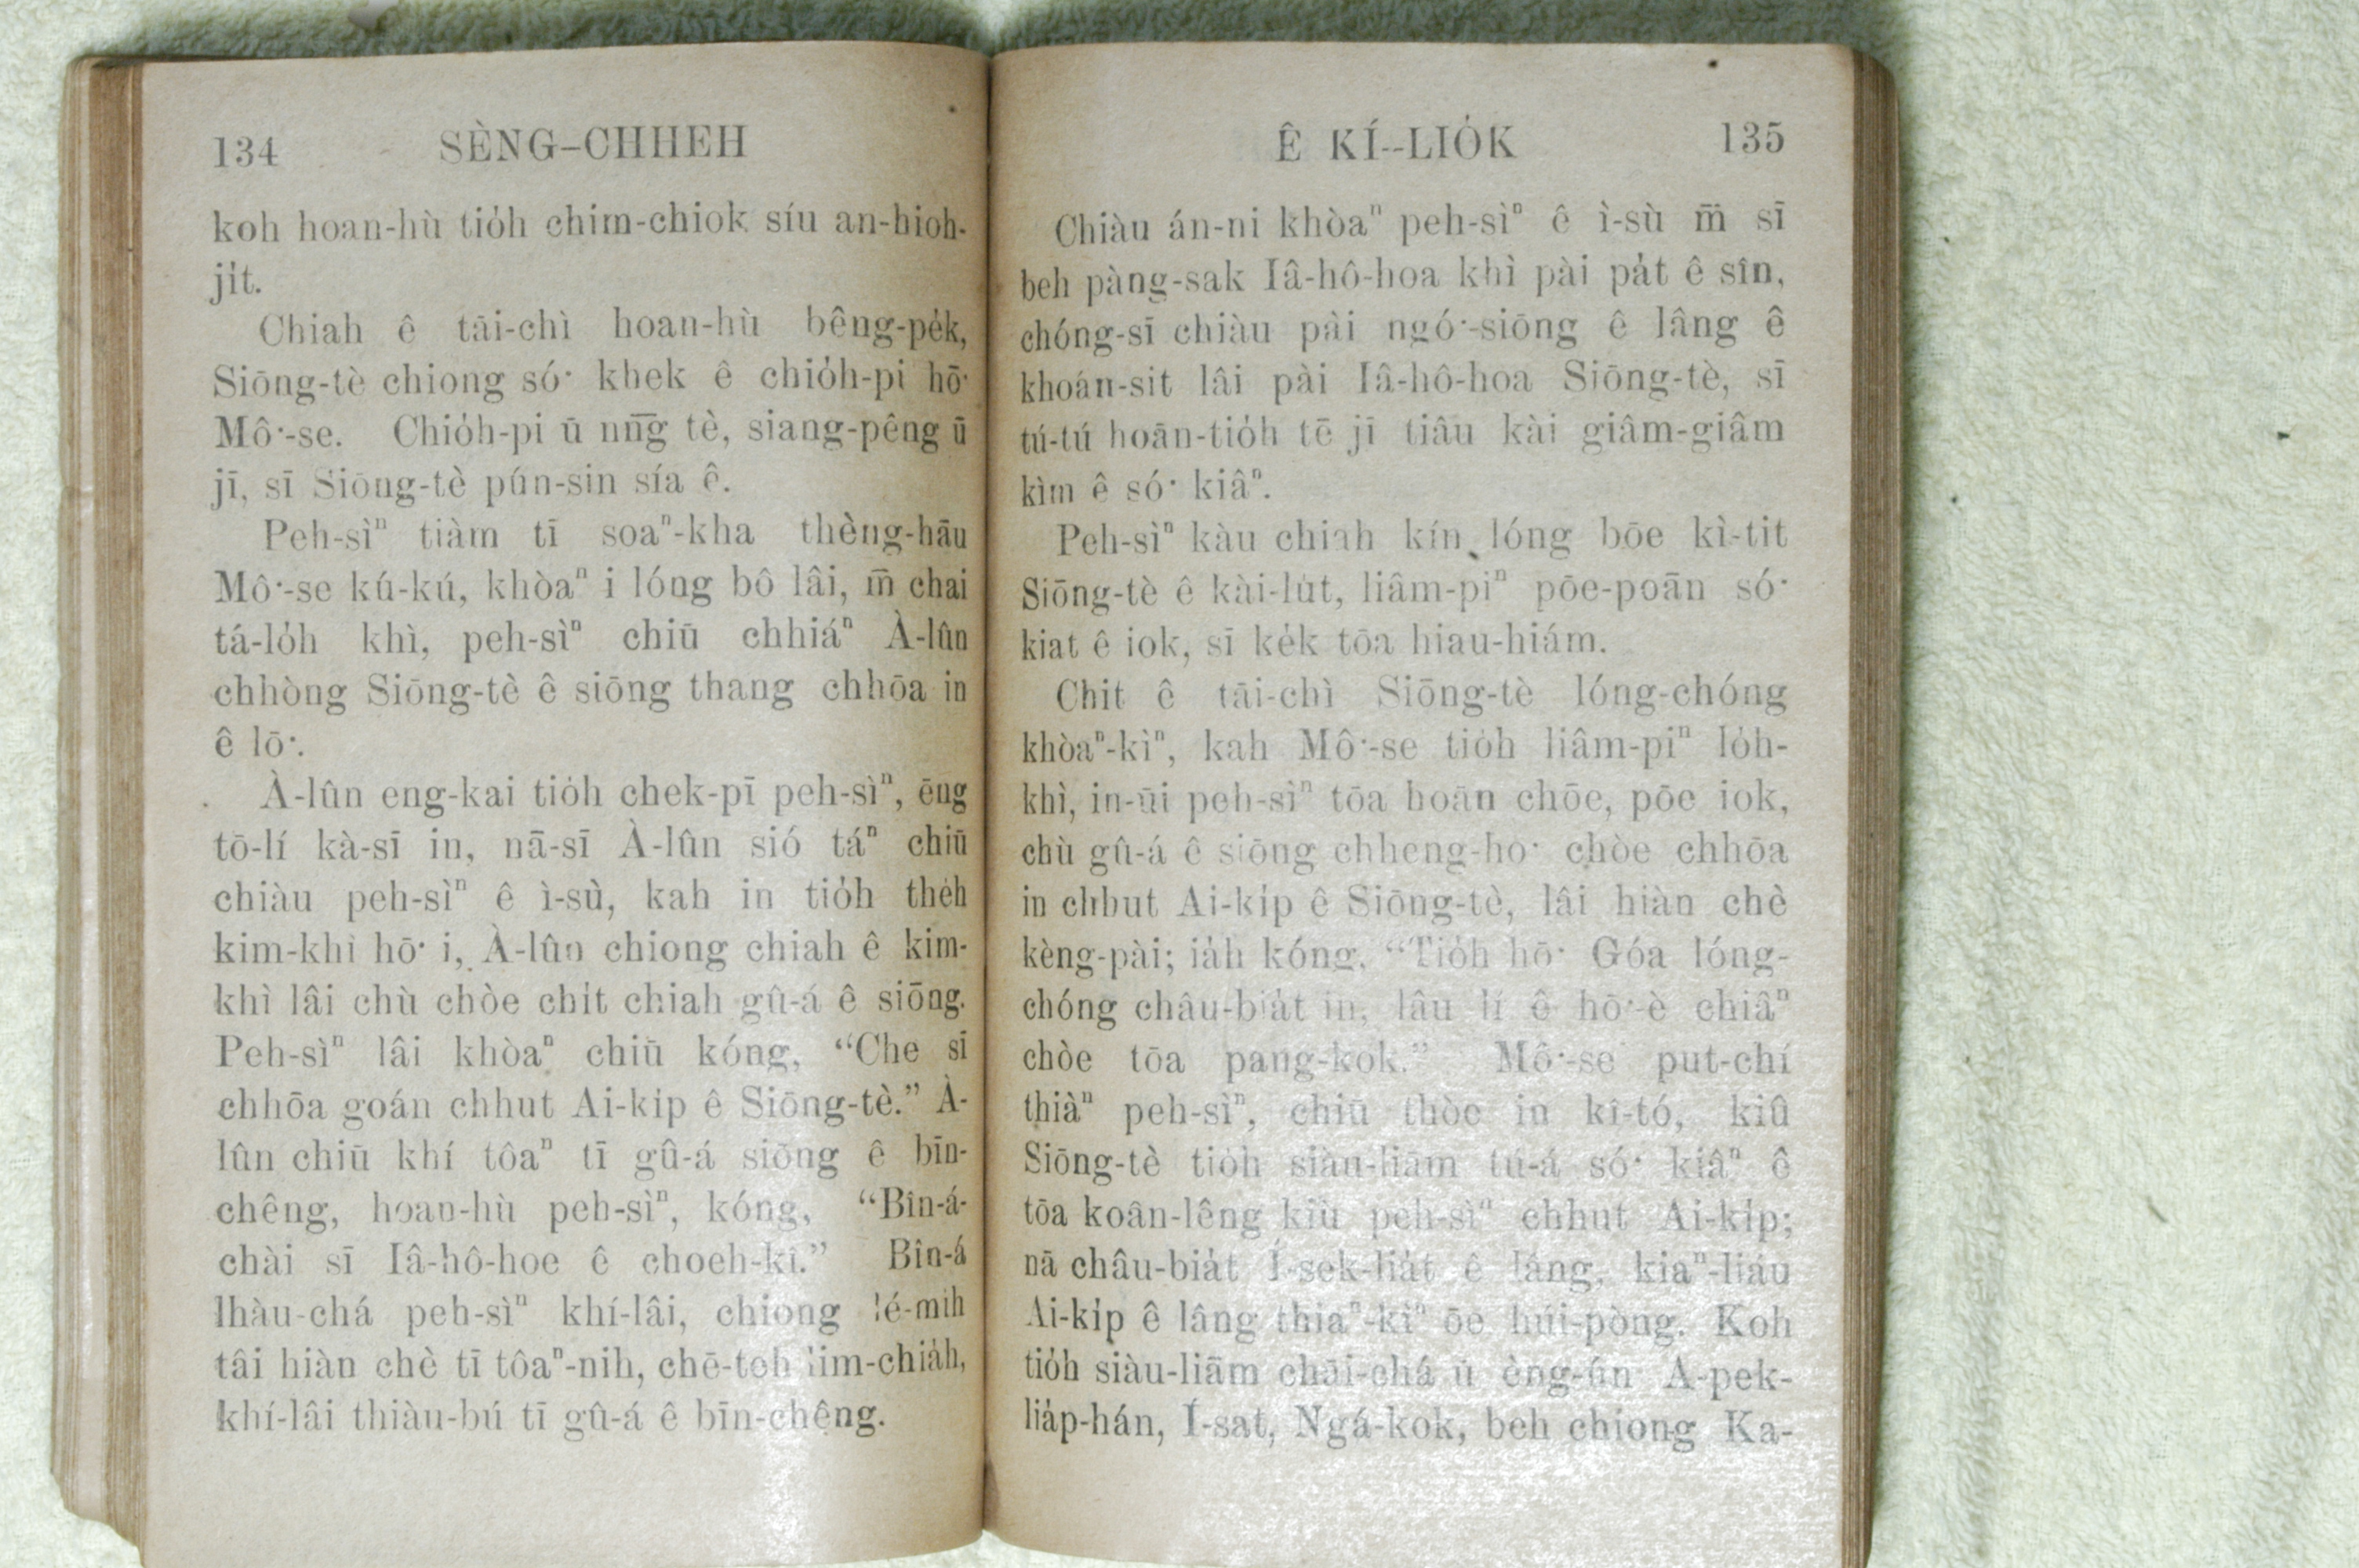 134 SÈNG-CHHEH
koh hoan-hù tio̍h chim-chiok síu an-hioh-
ji̍t.
Chiah ê tāi-chì hoan-hù bêng-pe̍k,
Siōng-tè chiong só͘ khek ê chio̍h-pi hō͘
Mô͘-se. Chio̍h-pi ū nn̄g tè, siang-pêng ū
jī, sī Siōng-tè pún-sin sía ê.
Peh-sìⁿ tiàm tī soaⁿ-kha thèng-hāu
Mô͘-se kú-kú, khòaⁿ i lóng bô lâi, m̄ chai
tá-lo̍h khì, peh-sìⁿ chiū chhiáⁿ À-lûn
chhòng Siōng-tè ê siōng thang chhōa in
ê lō͘.
À-lûn eng-kai tio̍h chek-pī peh-sìⁿ, ēng
tō-lí kà-sī in, nā-sī À-lûn sió táⁿ chiū
chiàu peh-sìⁿ ê ì-sù, kah in tio̍h the̍h
kim-khì hō͘ i, À-lûn chiong chiah ê kim-
khì lâi chù chòe chi̍t chiah gû-á ê siōng.
Peh-sìⁿ lâi khòaⁿ chiū kóng, “Che sī
chhōa goán chhut Ai-ki̍p ê Siōng-tè.” À-
lûn chiū khí tôaⁿ tī gû-á siōng ê bīn-
chêng, hoan-hù peh-sìⁿ, kóng, “Bîn-á-
chài sī Iâ-hô-hoe ê choeh-kî.” Bîn-á
thàu-chá peh-sìⁿ khí-lâi, chiong lé-mi̍h
tâi hiàn chè tī tôaⁿ-nih, chē-teh lim-chia̍h,
khí-lâi thiàu-bú tī gû-á ê bīn-chêng.
Ê KÍ--LIO̍K 135
Chiàu án-ni khòaⁿ peh-sìⁿ ê ì-sù m̄ sī
beh pàng-sak Iâ-hô-hoa khì pài pa̍t ê sîn,
chóng-sī chiàu pài ngó͘-siōng ê lâng ê
khoán-sit lâi pài Iâ-hô-hoa Siōng-tè, sī
tú-tú hoān-tio̍h tē jī tiâu kài giâm-giâm
kìm ê só͘ kiâⁿ.
Peh-sìⁿ kàu chiah kín lóng bōe kì-tit
Siōng-tè ê kài-lu̍t, liâm-piⁿ pōe-poān só͘
kiat ê iok, sī ke̍k tōa hiau-hiám.
Chit ê tāi-chì Siōng-tè lóng-chóng
khòaⁿ-kìⁿ, kah Mô͘-se tio̍h liâm-piⁿ lo̍h-
khì, in-ūi peh-sìⁿ tōa hoān chōe, pōe iok,
chù gû-á ê siōng chheng-ho͘ chòe chhōa
in chhut Ai-ki̍p ê Siōng-tè, lâi hiàn chè
kèng-pài; ia̍h kóng, “Tio̍h hō͘ Góa lóng-
chóng châu-bia̍t in, lâu lí ê hō͘-è chiâⁿ
chòe tōa pang-kok.” Mô͘-se put-chí
thiàⁿ peh-sìⁿ, chiū thòe in kî-tó, kiû
Siōng-tè tio̍h siàu-liām tú-á só͘ kiâⁿ ê
tōa koân-lêng kiù peh-sìⁿ chhut Ai-ki̍p;
nā châu-bia̍t Í-sek-lia̍t ê lâng, kiaⁿ-liáu
Ai-ki̍p ê lâng thiaⁿ-kìⁿ ōe húi-pòng. Koh
tio̍h siàu-liām chāi-chá ū èng-ún A-pek-
lia̍p-hán, Í-sat, Ngá-kok, beh chiong Ka-